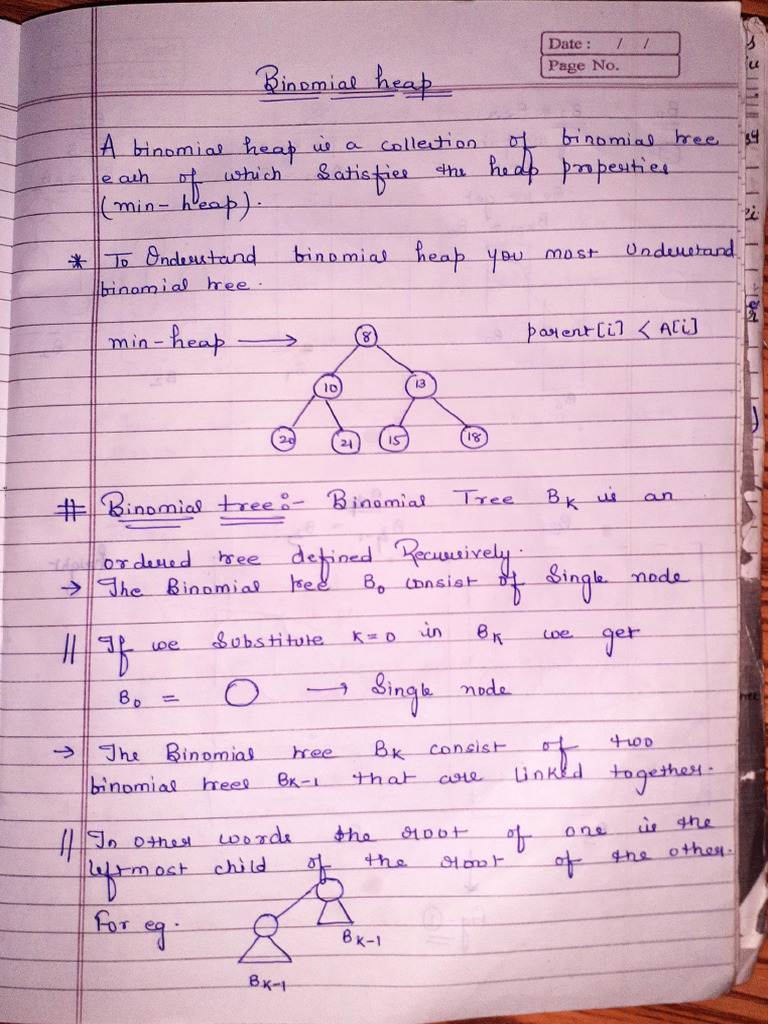 Date : / /
Page No.
Binomial heap
A binomial heap is a collection of binomial tree
each of which satisfies the heap properties
(min-heap).
* To Understand binomial heap you most Understand
binomial tree.
min-heap → 8 parent[i] < A[i]
10 13
20 21 15 18
# Binomial tree:- Binomial Tree BK is an
ordered tree defined Recursively.
→ The Binomial tree B0 consist of Single node
|| If we Substitute K=0 in BK we get
B0 = ○ → Single node
→ The Binomial tree BK consist of two
binomial trees BK-1 that are linked together.
|| In other words the root of one is the
leftmost child of the root of the other.
For eg.
BK-1
BK-1